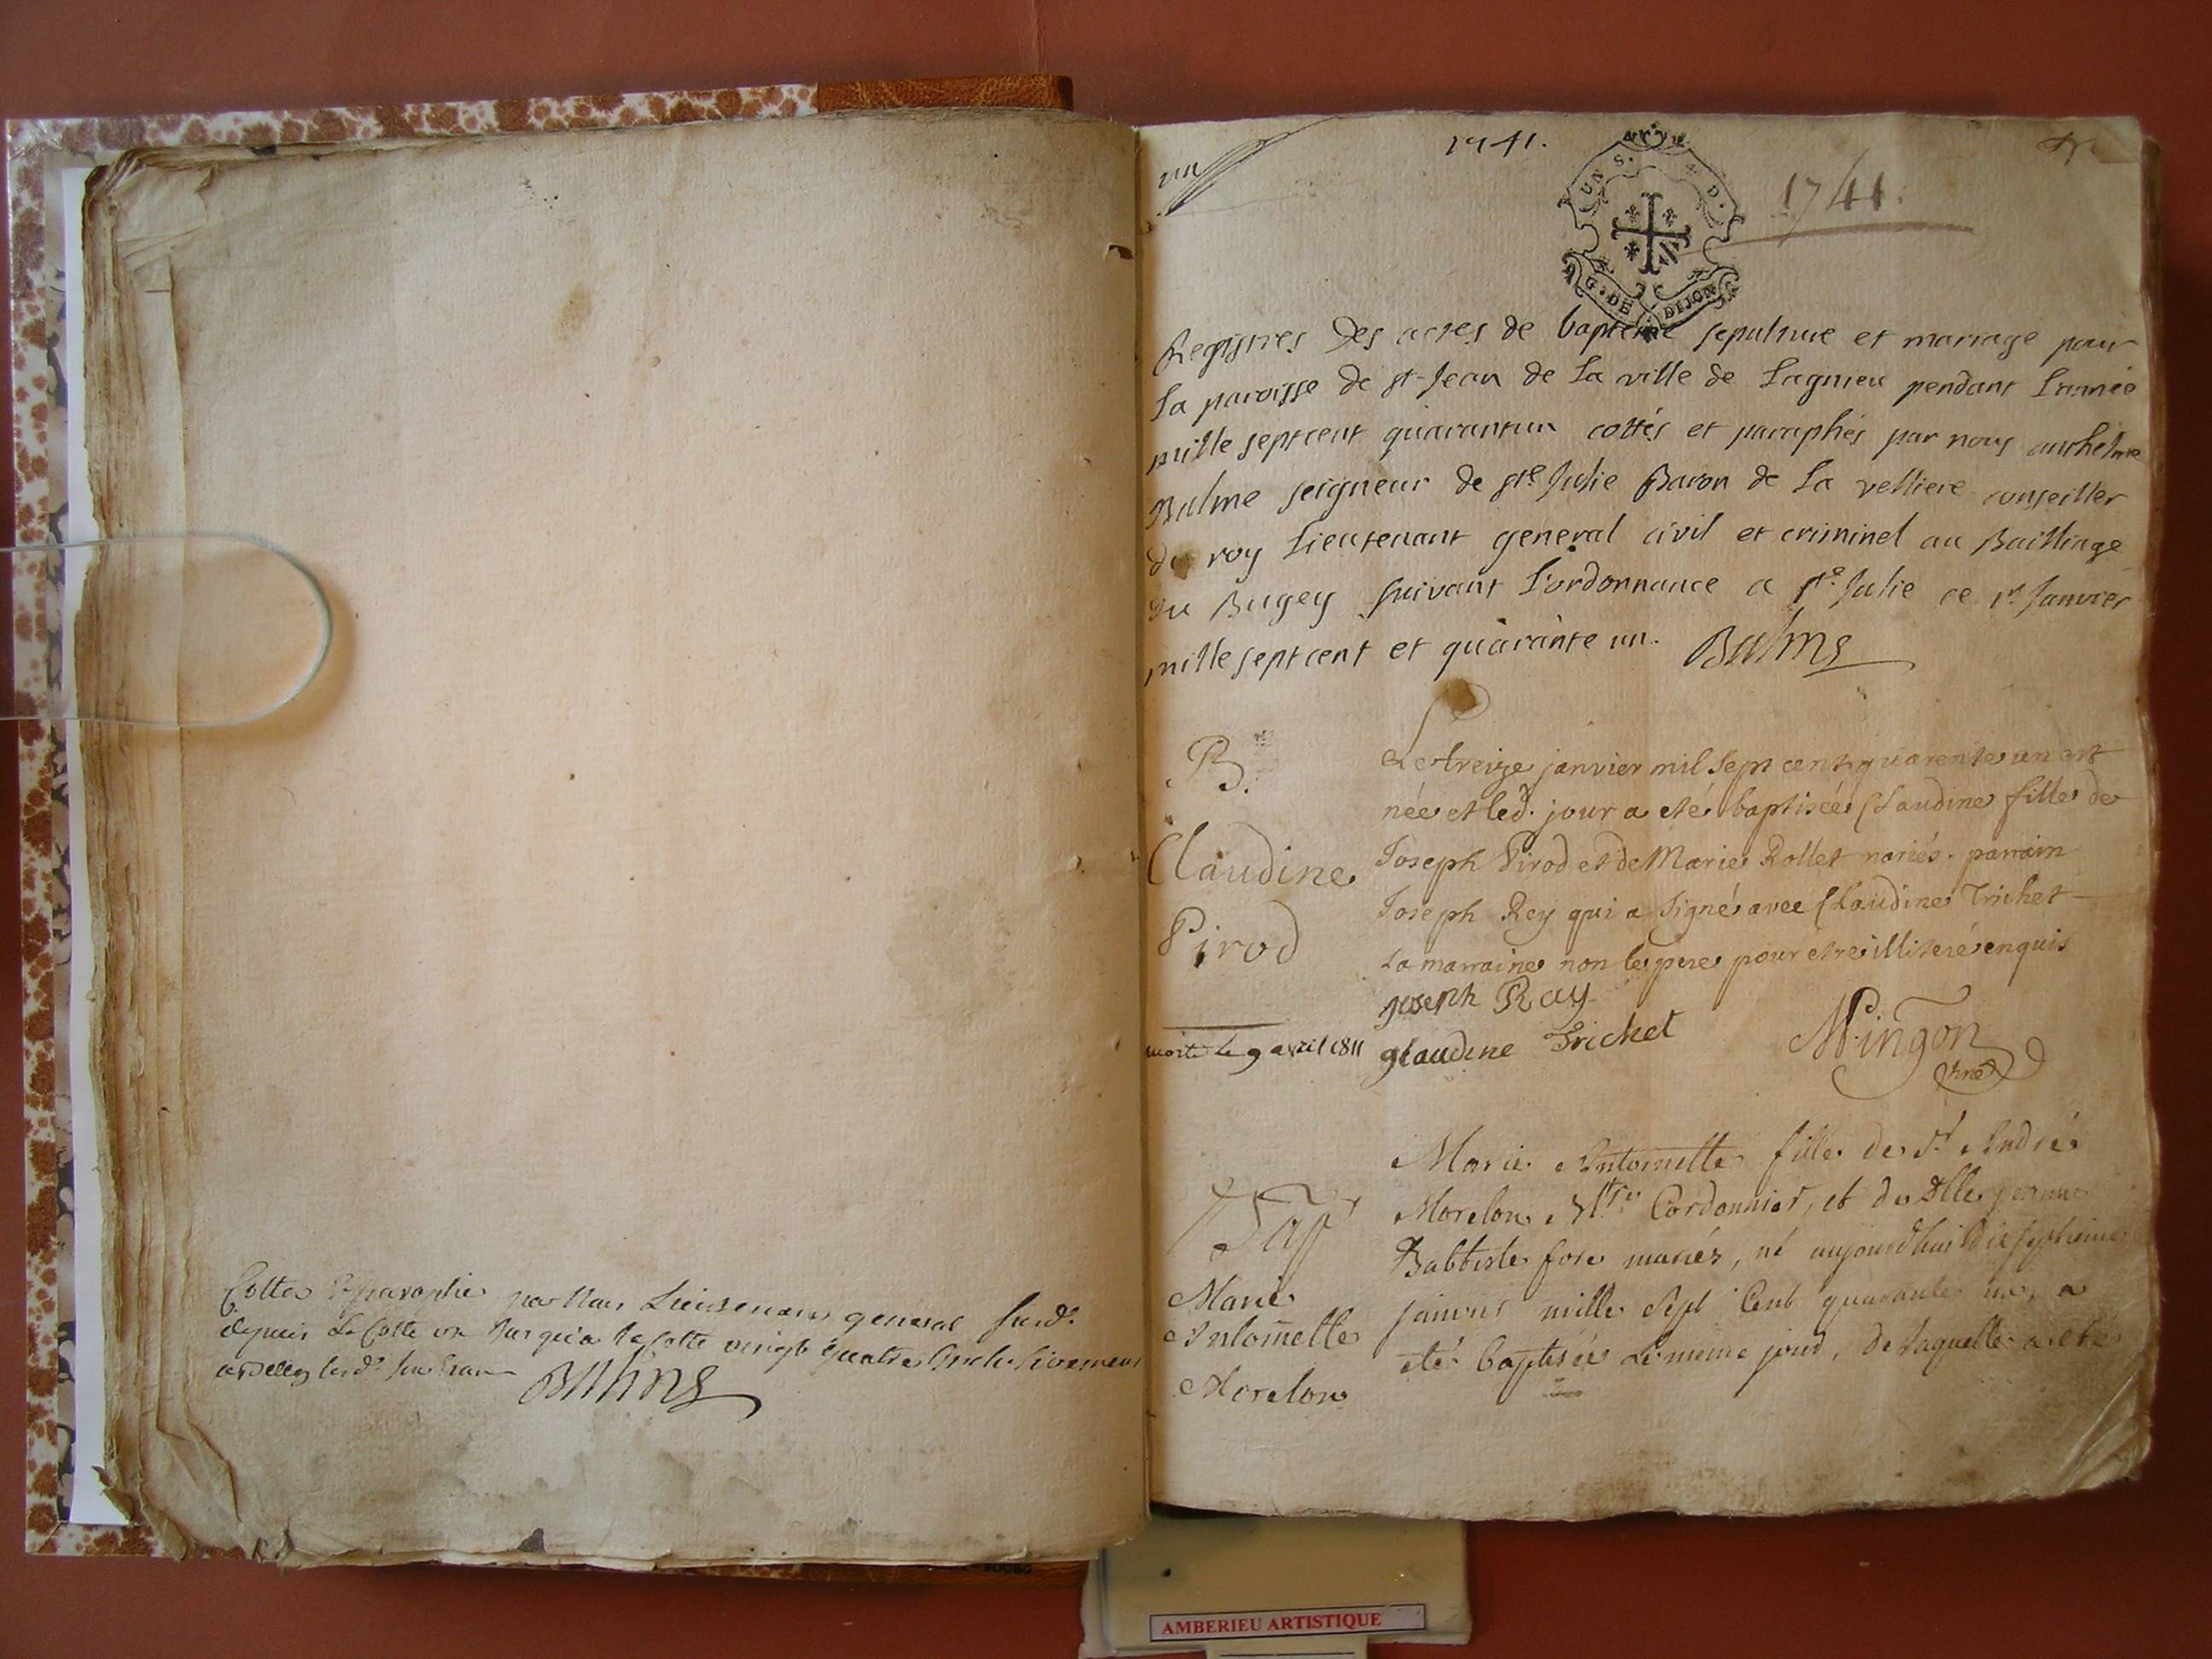 Cotté et paraphé par Nous Lieutenant general susd.
depuis La Cotte un Jusqu'a la Cotte vingt quatre Inclusivement
BALME
un
1741.
UNS. 4.D.
G. DE DIJON
1741.
Registres Des actes de baptême sepulture et mariage pour
La paroisse de st Jean de La ville de Lagnieu pendant L'année
mille septcent quarantun cottés et paraphés par nous anthelme
Balme seigneur de ste Julie Baron de La velliere conseiller
du roy Lieutenant general civil et criminel au Bailliage
Du Bugey suivant L'ordonnance a ste Julie ce 1r Janvier
mille sept cent et quarante un. Balme
B.
Claudine
Pirod
morte le 9 avril 1811
Le treize janvier mil sept cent quarente un est
née et led. jour a eté baptisée Claudine fille de
Joseph Pirod et de Marie Rollet mariés. parrain
Joseph Rey qui a signé avec Claudine Trichet
La marraine non le pere pour etre illiteré enquis
joseph Ray
glaudine Trichet
Mingon
Bap
Marie
Antoinette
Morelon
Marie Antoinette fille de Sr André
Morelon Mtre Cordonnier, et de Dlle jeanne
Babtiste fore mariés, né aujourdhui dix septieme
janvier mille sept Cent quarante un, a
eté baptisée Le meme jour, de Laquelle a eté
AMBERIEU ARTISTIQUE